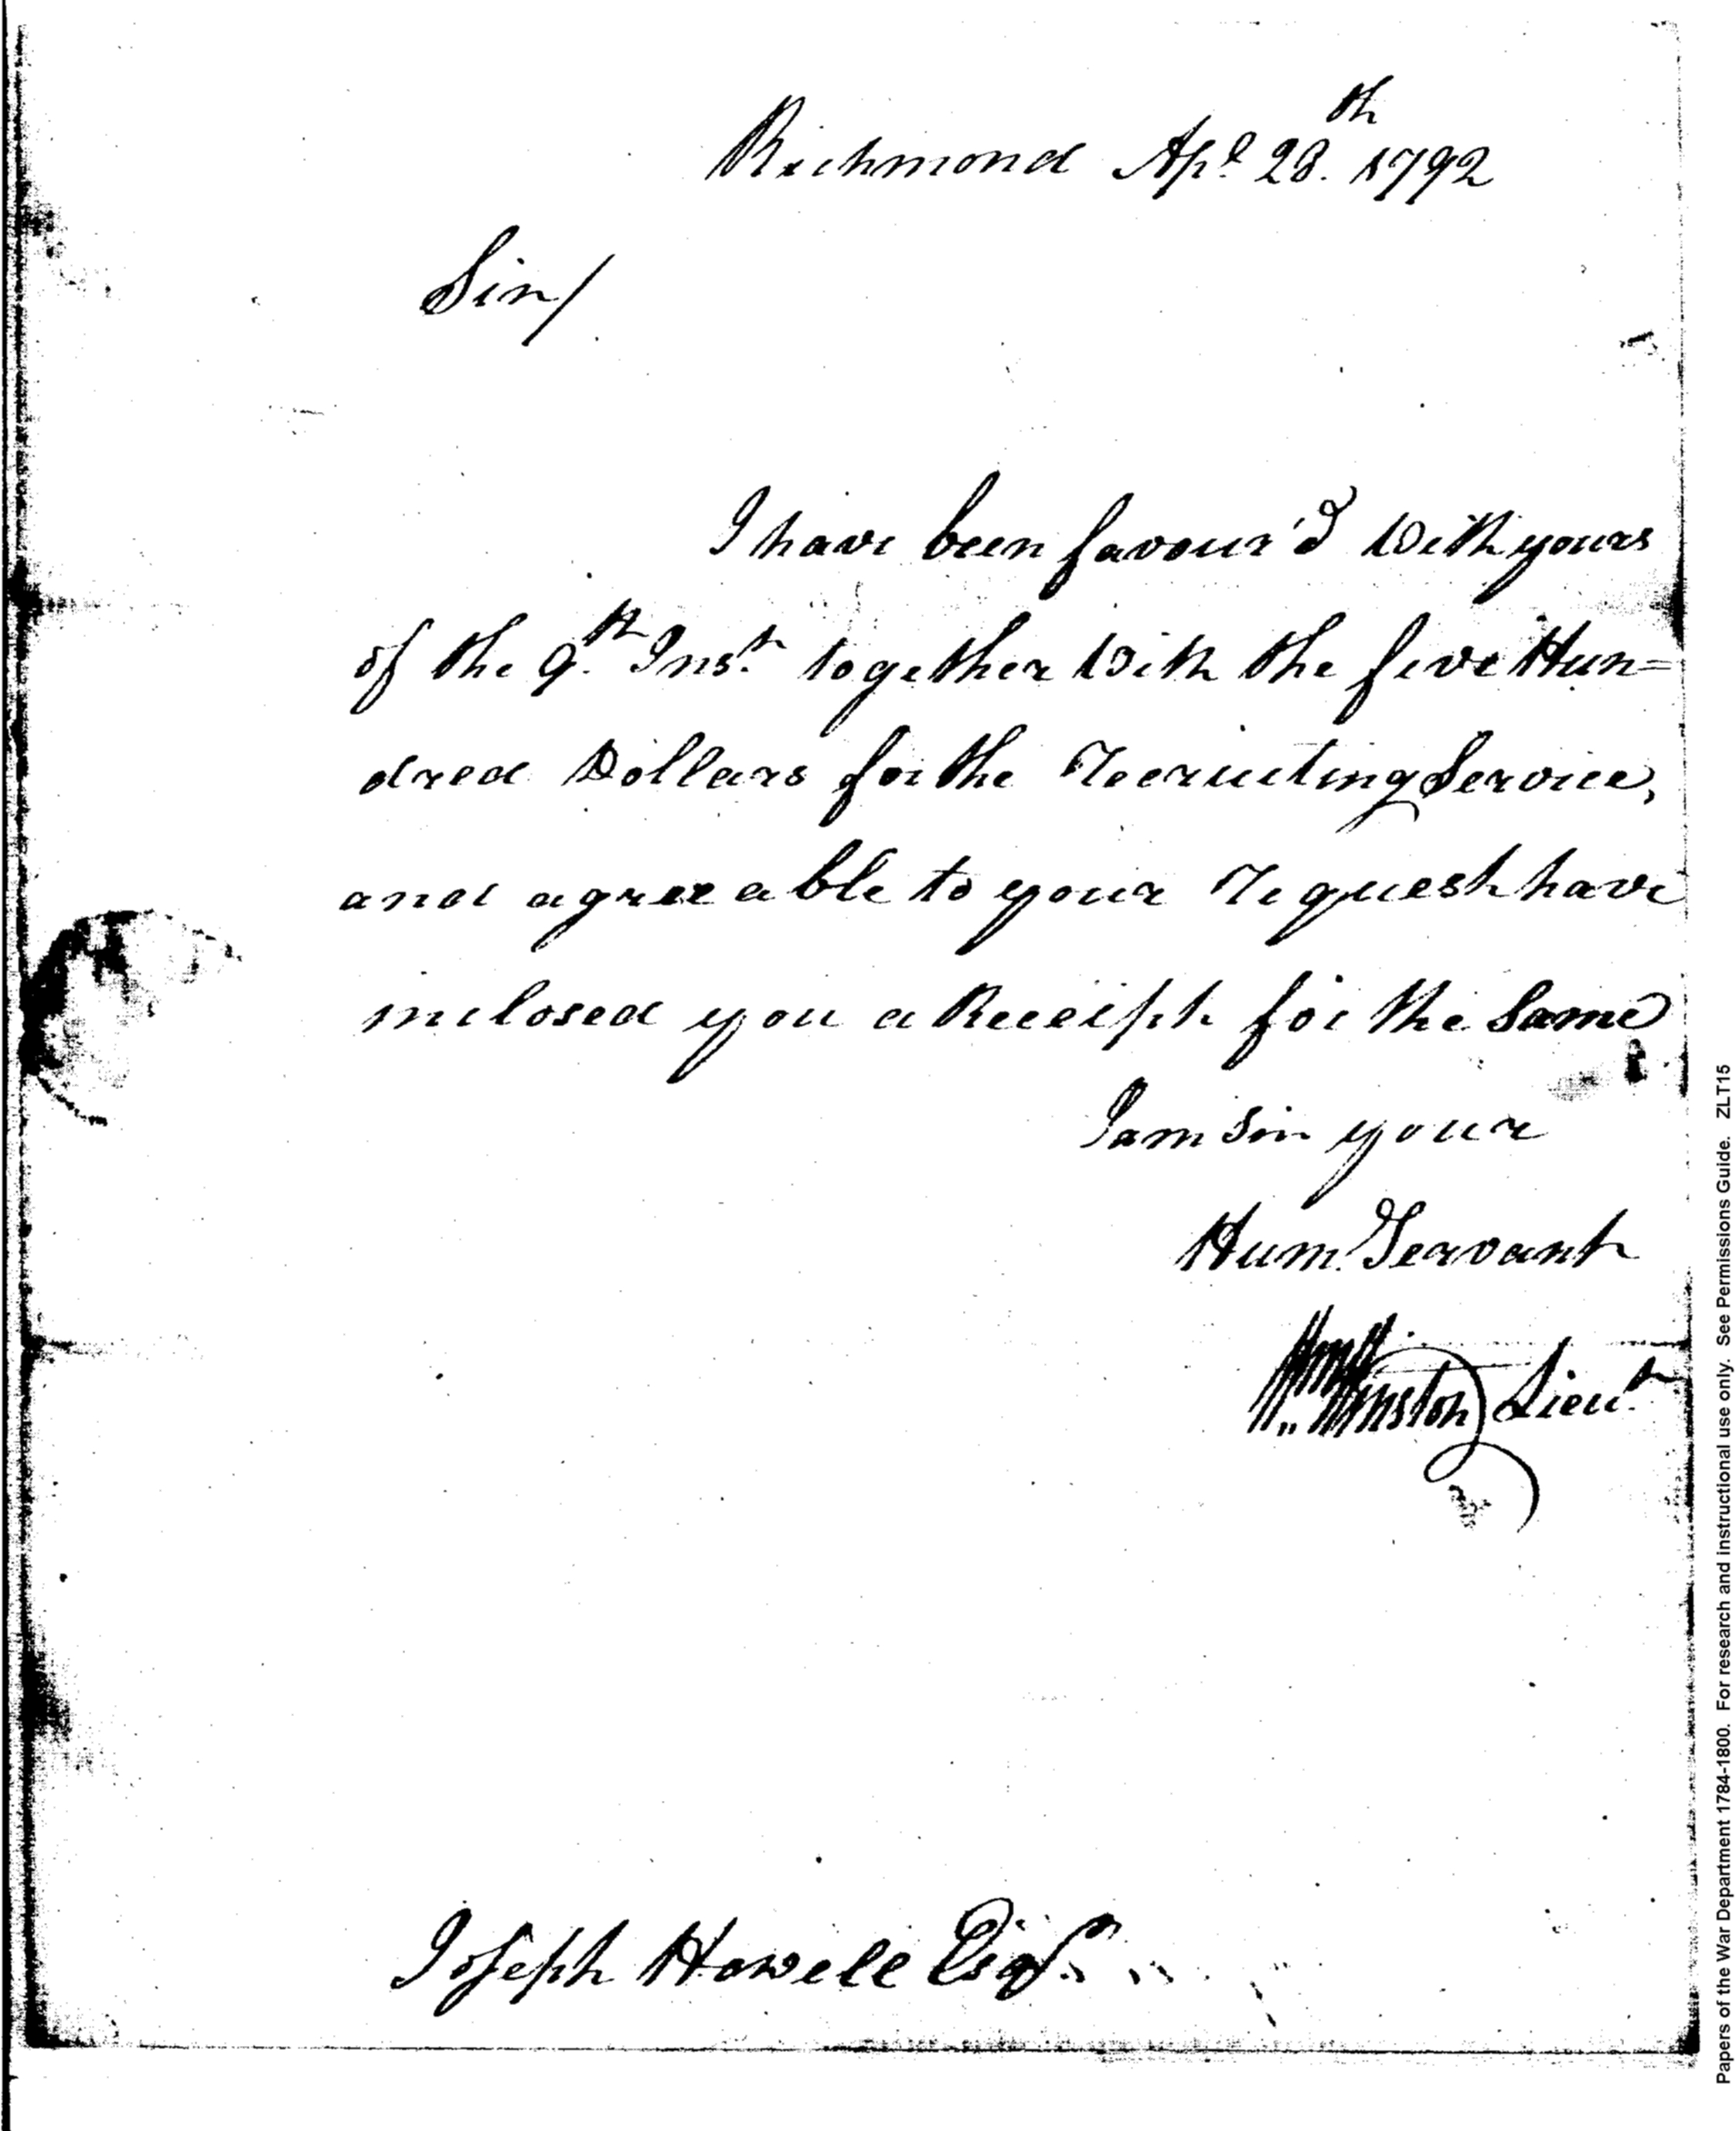 Richmond Apl 28th. 1792
Sir/
I have been favour'd With yours
of the 9th. Inst. together With the five Hun=
dred Dollars for the Recruiting Service,
and agreeable to your request have
inclosed you a Receipt for the Same
I am Sir your
Hum. Servant
Wm Winston Lieut.
Joseph Howell Esqr.
Papers of the War Department 1784-1800. For research and instructional use only. See Permissions Guide. ZLT15